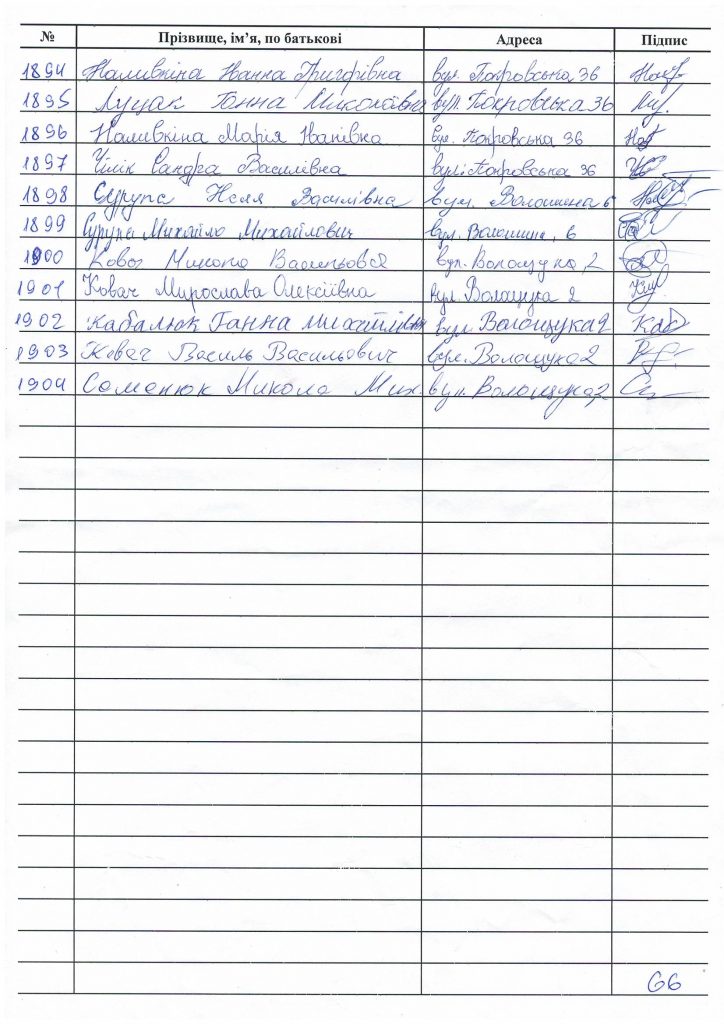 № Прізвище, ім’я, по батькові Адреса Підпис
1894 Наливкіна Іванна Григорівна вул. Покровська 36
1895 Луцак Ганна Миколаївна вул. Покровська 36
1896 Наливкіна Марія Іванівна вул. Покровська 36
1897 Чілік Сандра Василівна вул. Покровська 36
1898 Сурупа Неля Василівна вул. Волошина 6
1899 Сурупа Михайло Михайлович вул. Волошина, 6
1900 вул. Волощука, 2
1901 Ковач Мирослава Олексіївна вул. Волощука 2
1902 Кабалюк Ганна Михайлівна вул Волощука 2
1903 Ковач Василь Васильович вул. Волощука 2
1904 Семенюк Микола Мих. вул. Волощука 2
66